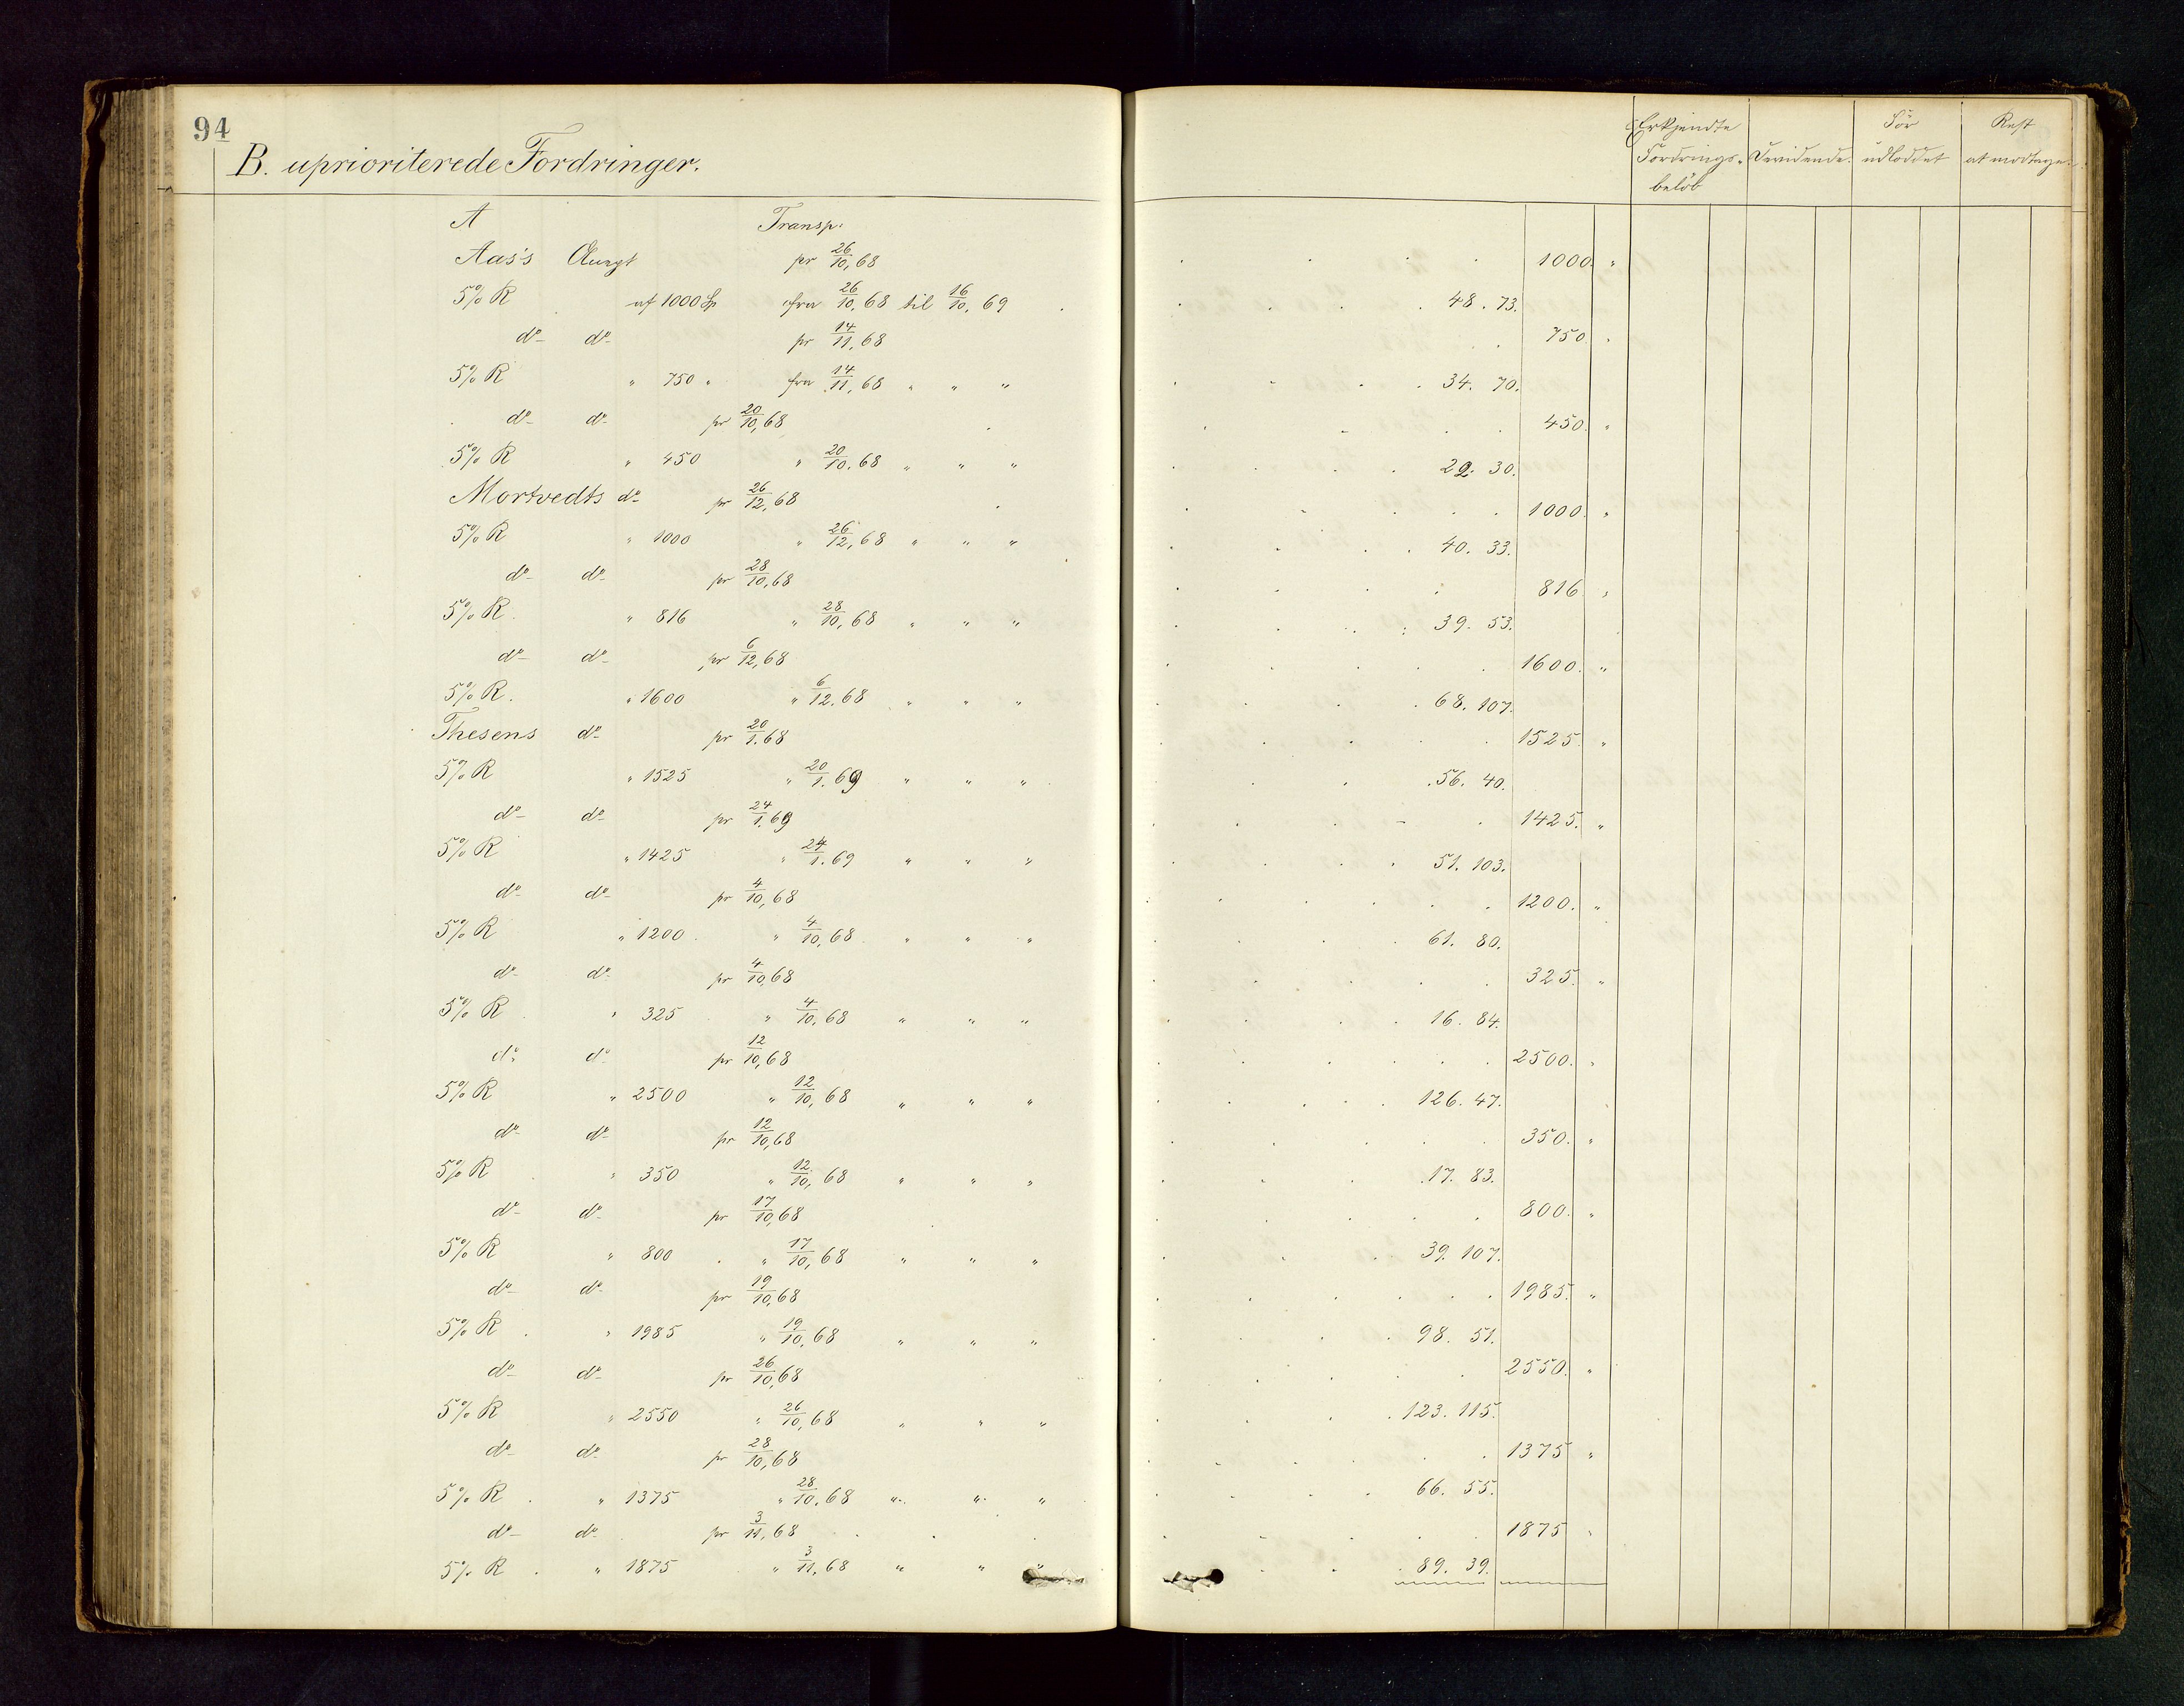 94
B. uprioriterede Fordringer.
Erkjendte Fordrings- beløb
Devidende.
Før udloddet
Rest at modtage.
A Transp:
Aas's pr 26/10,68 1000. "
5% R af 1000 Sp fra 26/10,68 til 16/10,69 48. 73.
do do pr 14/11,68 750. "
5% R " 750 " fra 14/11,68 " " " 34. 70.
do do pr 20/10,68 450. "
5% R " 450 " 20/10,68 " " " 22. 30.
Mortvedts do pr 26/12,68 1000. "
5% R " 1000 " 26/12,68 " " " 40. 33.
do do pr 28/10,68 816. "
5% R " 816 " 28/10,68 " " " 39. 53.
do do pr 6/12,68 1600. "
5% R. " 1600 " 6/12.68 " " " 68. 107.
Thesens do pr 20/1.68 1525. "
5% R " 1525 " 20/1.69 " " " 56. 40.
do do pr 24/1.69 1425. "
5% R " 1425 " 24/1.69 " " " 51. 103.
do do pr 4/10,68 1200. "
5% R " 1200 " 4/10,68 " " " 61. 80.
do do pr 4/10,68 325. "
5% R " 325 " 4/10,68 " " " 16. 84.
do do pr 12/10,68 2500. "
5% R " 2500 " 12/10,68 " " " 126. 47.
do do pr 12/10,68 350. "
5% R " 350 " 12/10,68 " " " 17. 83.
do do pr 17/10,68 800. "
5% R " 800 " 17/10,68 " " " 39. 107.
do do pr 19/10,68 1985. "
5% R " 1985 " 19/10,68 " " " 98. 51.
do do pr 26/10,68 2550. "
5% R " 2550 " 26/10,68 " " " 123. 115.
do do pr 28/10,68 1375 "
5% R " 1375 " 28/10,68 " " " 66. 55.
do do pr 3/11,68 1875 "
5% R " 1875 " 3/11,68 " " " 89. 39.